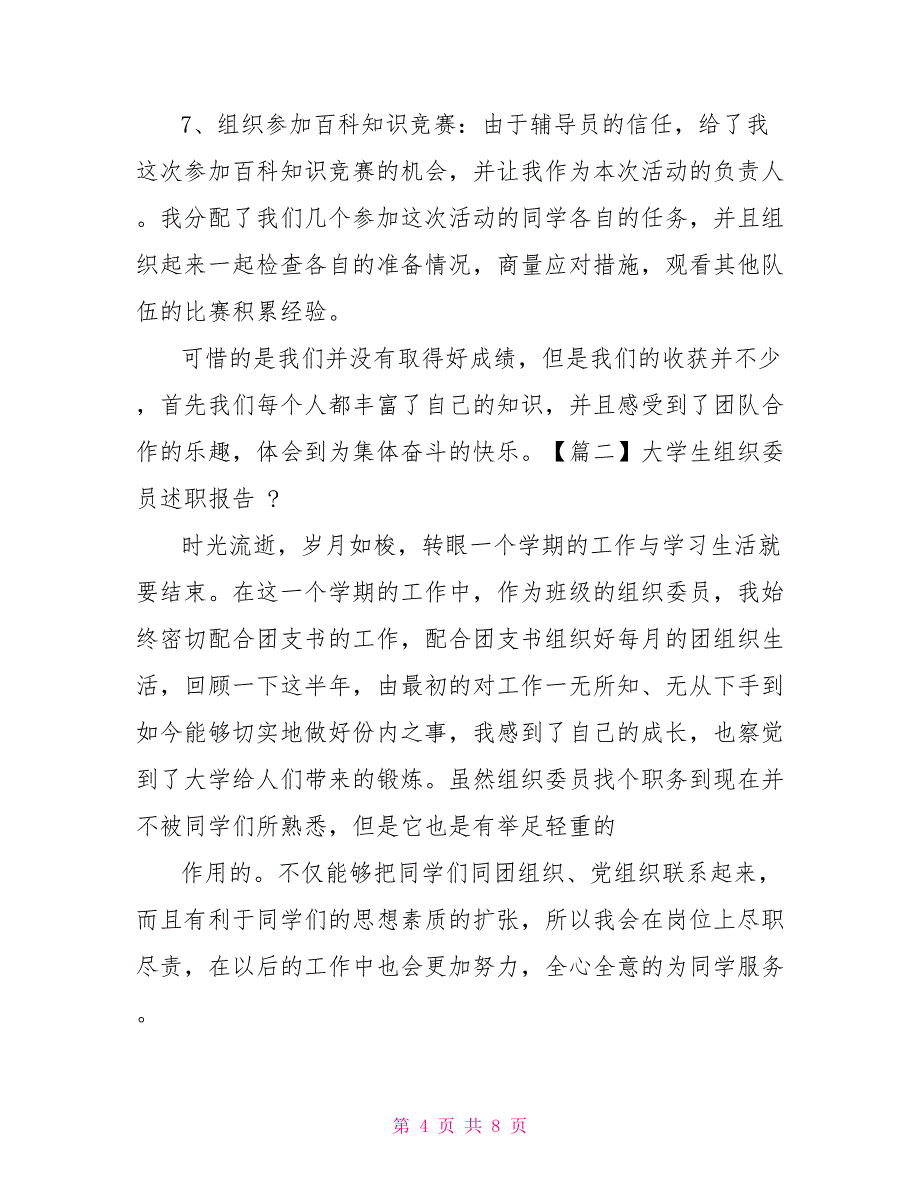 7、组织参加百科知识竞赛：由于辅导员的信任，给了我
这次参加百科知识竞赛的机会，并让我作为本次活动的负责人
。我分配了我们几个参加这次活动的同学各自的任务，并且组
织起来一起检查各自的准备情况，商量应对措施，观看其他队
伍的比赛积累经验。
可惜的是我们并没有取得好成绩，但是我们的收获并不少
，首先我们每个人都丰富了自己的知识，并且感受到了团队合
作的乐趣，体会到为集体奋斗的快乐。【篇二】大学生组织委
员述职报告 ?
时光流逝，岁月如梭，转眼一个学期的工作与学习生活就
要结束。在这一个学期的工作中，作为班级的组织委员，我始
终密切配合团支书的工作，配合团支书组织好每月的团组织生
活，回顾一下这半年，由最初的对工作一无所知、无从下手到
如今能够切实地做好份内之事，我感到了自己的成长，也察觉
到了大学给人们带来的锻炼。虽然组织委员找个职务到现在并
不被同学们所熟悉，但是它也是有举足轻重的
作用的。不仅能够把同学们同团组织、党组织联系起来，
而且有利于同学们的思想素质的扩张，所以我会在岗位上尽职
尽责，在以后的工作中也会更加努力，全心全意的为同学服务
。
第 4 页 共 8 页